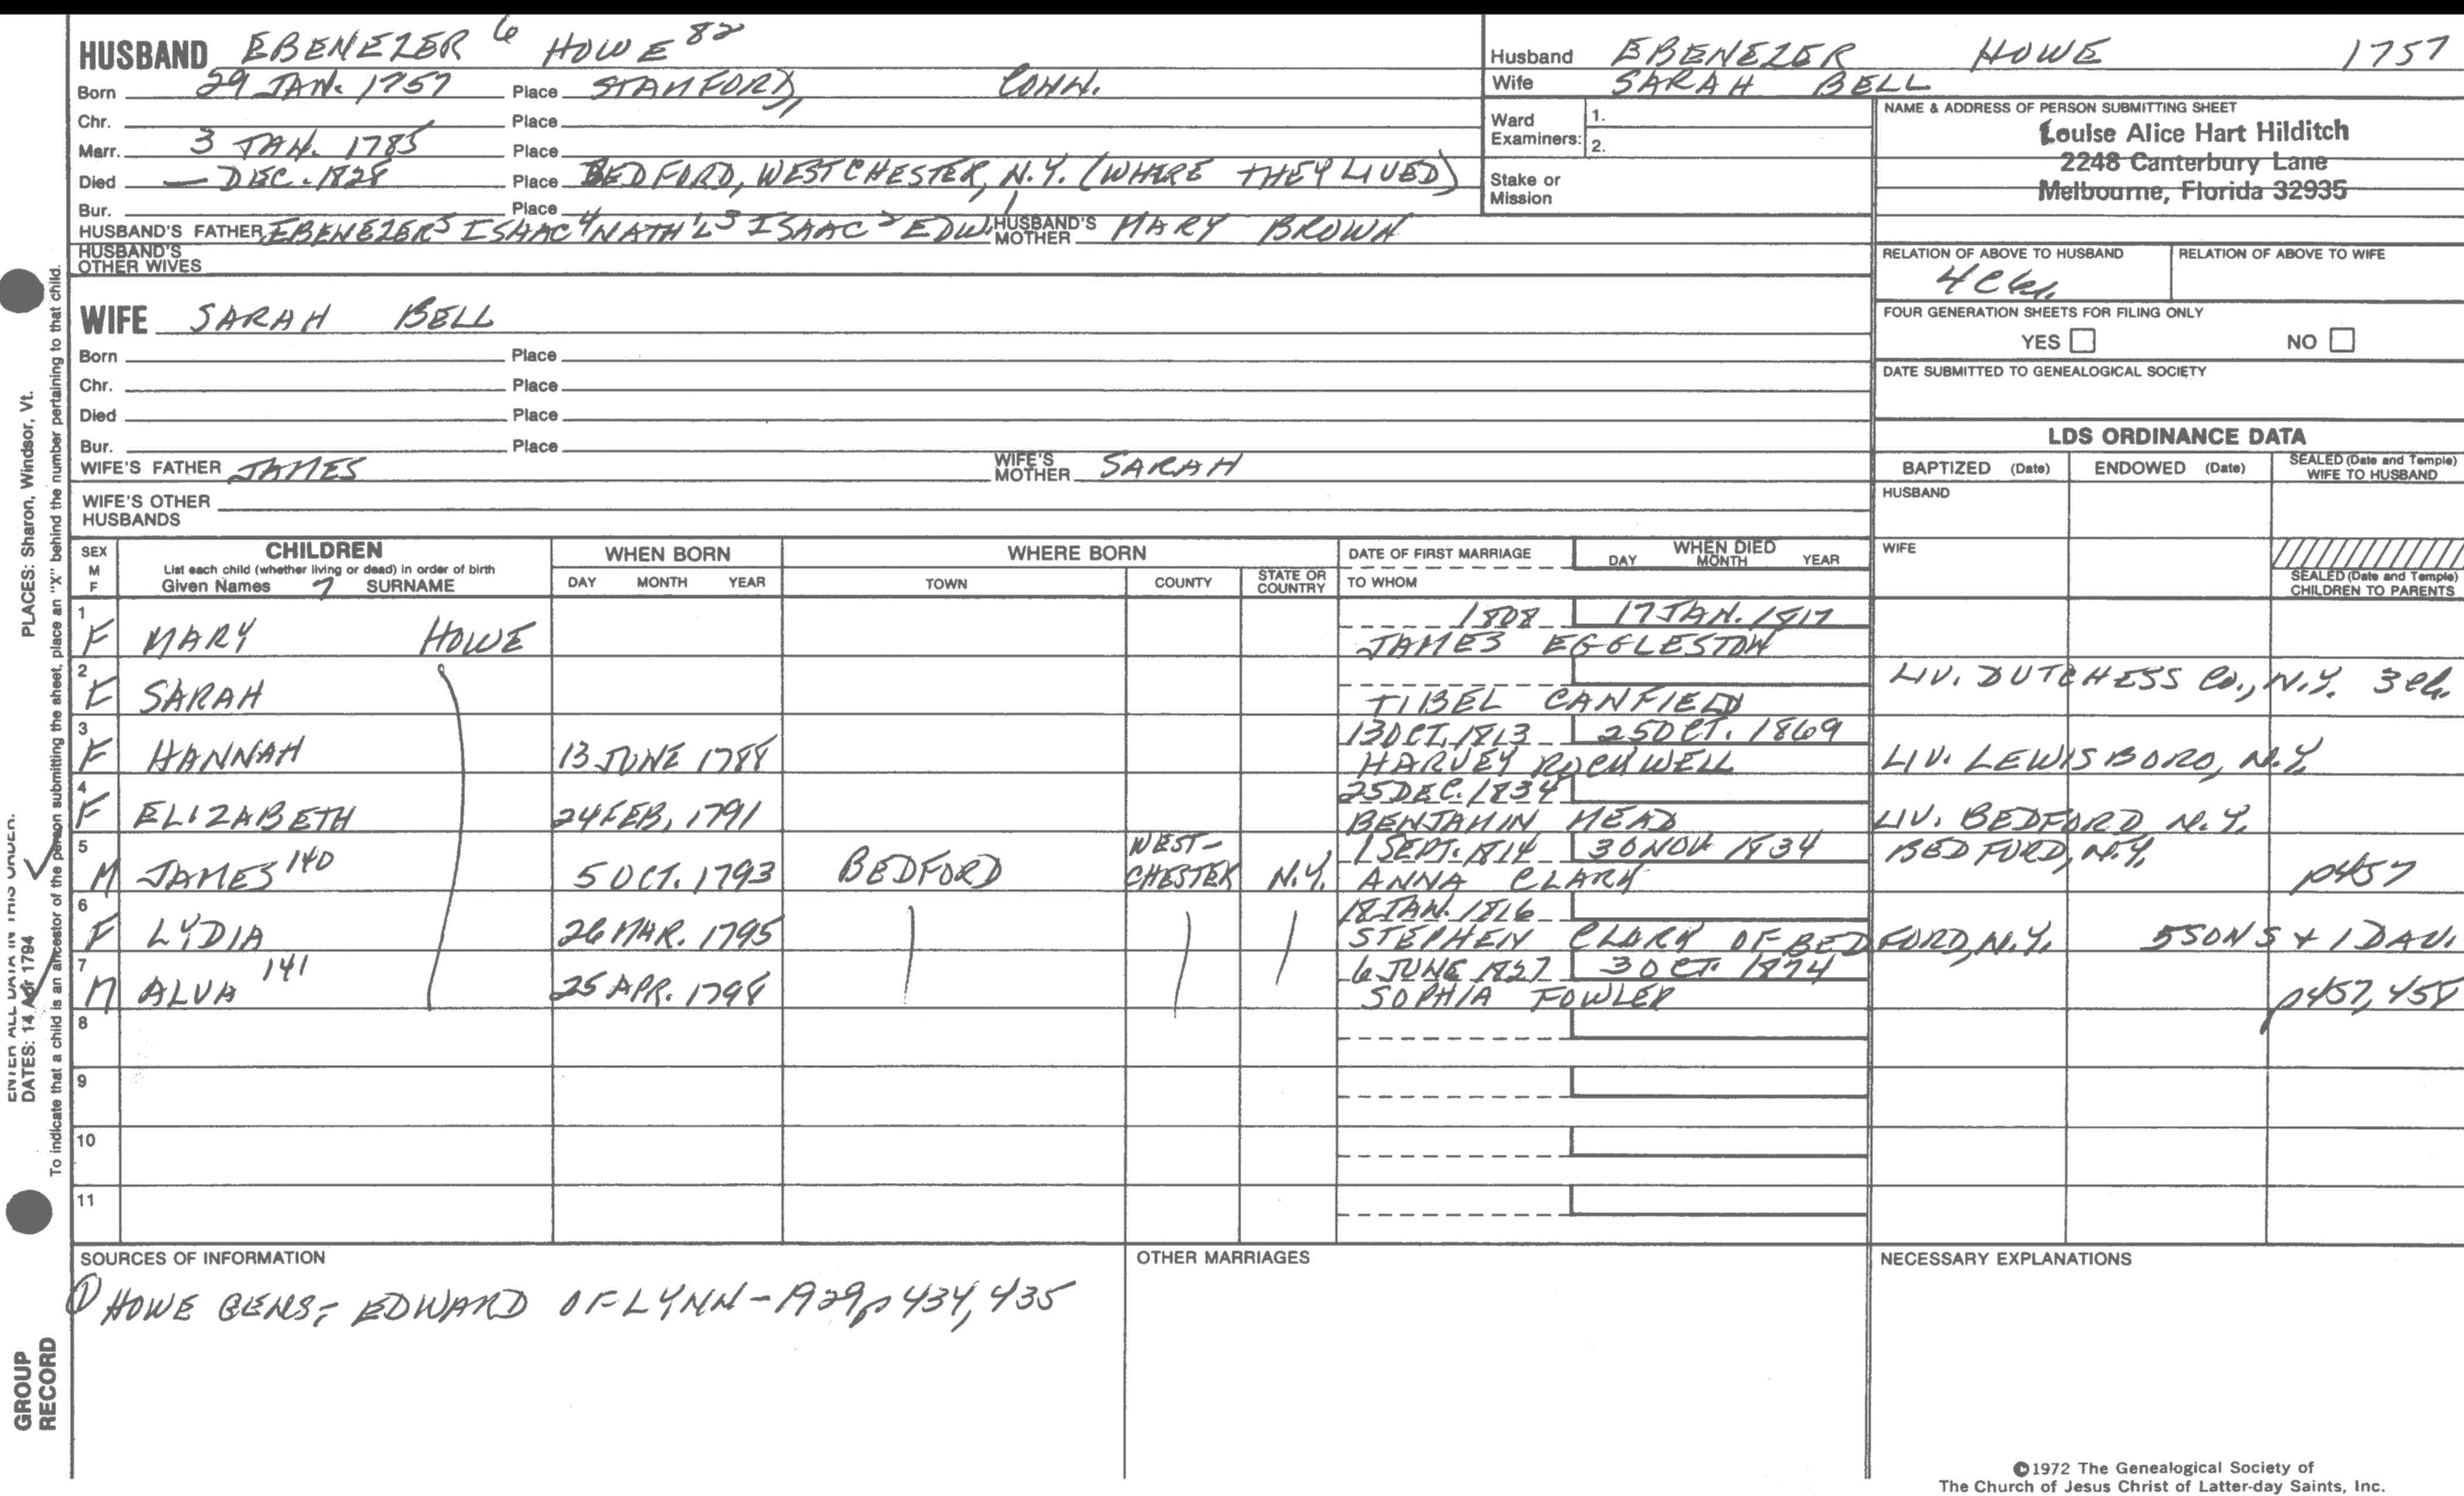 HUSBAND EBENEZER 6 HOWE 82
Born 29 JAN. 1757 Place STAMFORD, CONN.
Chr. Place
Marr. 3 JAN. 1785 Place
Died — DEC. 1828 Place BEDFORD, WESTCHESTER, N.Y. (WHERE THEY LIVED)
Bur. Place
HUSBAND'S FATHER EBENEZER5 ISAAC4 NATH'L3 ISAAC2 EDW.1 HUSBAND'S MOTHER MARY BROWN
HUSBAND'S OTHER WIVES
WIFE SARAH BELL
Born Place
Chr. Place
Died Place
Bur. Place
WIFE'S FATHER JAMES WIFE'S MOTHER SARAH
WIFE'S OTHER HUSBANDS
Husband EBENEZER HOWE 1757
Wife SARAH BELL
Ward Examiners: 1.
2.
Stake or Mission
NAME & ADDRESS OF PERSON SUBMITTING SHEET
Louise Alice Hart Hilditch
2248 Canterbury Lane
Melbourne, Florida 32935
RELATION OF ABOVE TO HUSBAND RELATION OF ABOVE TO WIFE
FOUR GENERATION SHEETS FOR FILING ONLY
YES NO
DATE SUBMITTED TO GENEALOGICAL SOCIETY
LDS ORDINANCE DATA
BAPTIZED (Date) ENDOWED (Date) SEALED (Date and Temple) WIFE TO HUSBAND
HUSBAND
WIFE
SEALED (Date and Temple) CHILDREN TO PARENTS
SEX M F CHILDREN WHEN BORN WHERE BORN DATE OF FIRST MARRIAGE WHEN DIED
List each child (whether living or dead) in order of birth
Given Names 7 SURNAME DAY MONTH YEAR TOWN COUNTY STATE OR COUNTRY TO WHOM DAY MONTH YEAR
1 1808 17 JAN. 1817
F MARY HOWE JAMES EGGLESTON
2
F SARAH TIBEL CANFIELD LIV. DUTCHESS CO., N.Y. 3 ch.
3 13 OCT. 1813 25 OCT. 1869
F HANNAH 13 JUNE 1788 HARVEY ROCKWELL LIV. LEWISBORO, N.Y.
4 25 DEC. 1834
F ELIZABETH 24 FEB. 1791 BENJAMIN MEAD LIV. BEDFORD, N.Y.
5 1 SEPT. 1814 30 NOV. 1834 BEDFORD, N.Y.
M JAMES 140 5 OCT. 1793 BEDFORD WEST-CHESTER N.Y. ANNA CLARK p457
6 18 JAN. 1816
F LYDIA 26 MAR. 1795 STEPHEN CLARK OF BEDFORD, N.Y. 5 SONS + 1 DAU.
7 6 JUNE 1827 3 OCT. 1874
M ALVA 141 25 APR. 1798 SOPHIA FOWLER p457, 458
8
9
10
11
SOURCES OF INFORMATION
① HOWE GENS, EDWARD OF LYNN - 1929, p 434, 435
OTHER MARRIAGES
NECESSARY EXPLANATIONS
©1972 The Genealogical Society of
The Church of Jesus Christ of Latter-day Saints, Inc.
ENTER ALL DATA IN THIS ORDER.
DATES: 14 Apr 1794
PLACES: Sharon, Windsor, Vt.
To indicate that a child is an ancestor of the person submitting the sheet, place an "X" behind the number pertaining to that child.
GROUP
RECORD